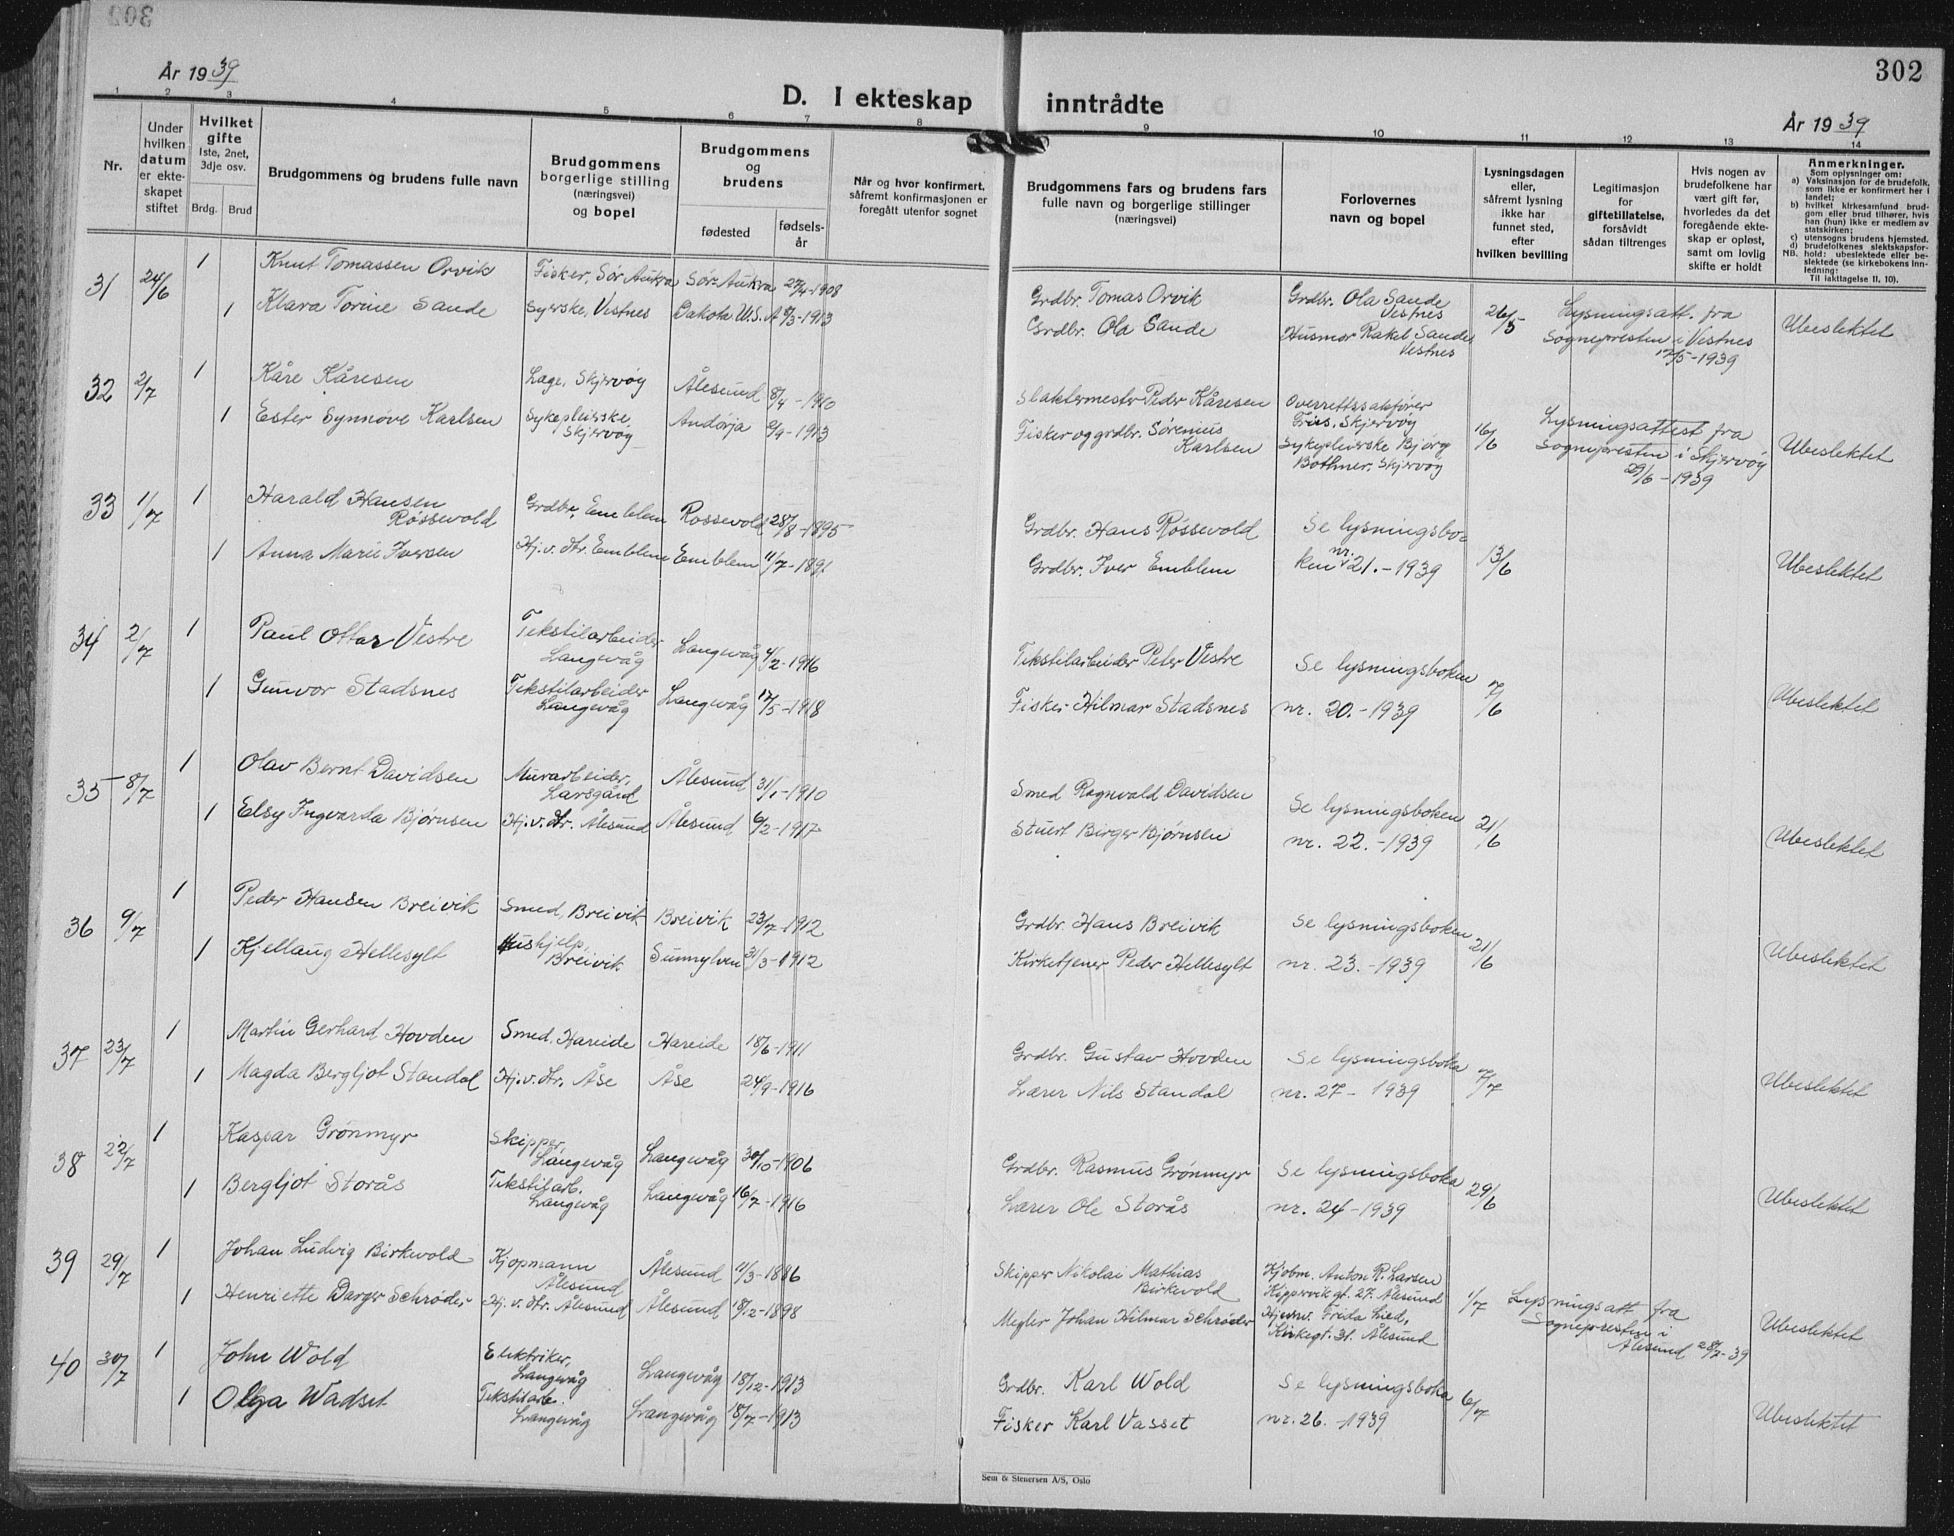 302
År 1939
D. I ekteskap inntrådte
År 1939
1 2 3 4 5 6 7 8 9 10 11 12 13 14
Nr.
Under hvilken datum er ekteskapet stiftet
Hvilket gifte
1ste, 2net, 3dje osv.
Brdg. Brud
Brudgommens og brudens fulle navn
Brudgommens borgerlige stilling (næringsvei) og bopel
Brudgommens og brudens
fødested
fødselsår
Når og hvor konfirmert, såfremt konfirmasjonen er foregått utenfor sognet
Brudgommens fars og brudens fars fulle navn og borgerlige stillinger (næringsvei)
Forlovernes navn og bopel
Lysningsdagen eller, såfremt lysning ikke har funnet sted, efter hvilken bevilling
Legitimasjon for giftetillatelse, forsåvidt sådan tiltrenges
Hvis nogen av brudefolkene har vært gift før, hvorledes da det foregående ekteskap er opløst, samt om lovlig skifte er holdt
Anmerkninger.
Som oplysninger om:
a) Vaksinasjon for de brudefolk, som ikke er konfirmert her i landet;
b) hvilket kirkesamfund brudgom eller brud tilhører, hvis han (hun) ikke er medlem av statskirken;
c) utensogns brudens hjemsted.
d) brudefolkenes slektskapsforhold: ubeslektede eller beslektede (se kirkebokens innledning:
NB. Til iakttagelse II, 10).
31 24/6 1 Knut Tomassen Orvik Fisker, Sør Aukra Sør. Aukra 27/4-1908 Grdbr. Tomas Orvik Grdbr. Ola Sande Vestnes 26/5 Lysningsatt. fra Sognepresten i Vestnes 17/5-1939 Ubeslektet
1 Klara Torine Sande Syerske, Vestnes Dakota U.S.A 8/3-1913 Grdbr. Ola Sande Husmor Rakel Sande Vestnes
32 2/7 1 Kåre Kåresen Læge, Skjervøy Ålesund 8/4-1910 Slaktermester Peder Kåresen Overrettssakfører Friis, Skjervøy 16/6 Lysningsattest fra Sognepresten i Skjervøy 29/6-1939 Ubeslektet
1 Ester Synnøve Karlsen Sykepleierske Skjervøy Andørja 6/9-1913 Fisker og grdbr. Sørenius Karlsen Sykepleierske Bjorg Bothner, Skjervøy
33 1/7 1 Harald Hansen Røssevold Grdbr, Emblem Røssevold 28/8-1895 Grdbr. Hans Røssevold Se lysningsboken nr. 21.-1939 13/6 Ubeslektet
1 Anna Marie Iversen Hj. v. dtr. Emblem Emblem 11/7-1891 Grdbr. Iver Emblem
34 2/7 1 Paul Ottar Vestre Tekstilarbeider Langevåg Langevåg 4/2-1916 Tekstilarbeider Peter Vestre Se lysningsboken nr. 20.-1939 7/6 Ubeslektet
1 Gunvor Stadsnes Tekstilarbeider Langevåg Langevåg 17/5-1918 Fisker Hilmar Stadsnes
35 8/7 1 Olav Bernt Davidsen Murarbeider, Larsgård Ålesund 31/1-1910 Smed Ragnvald Davidsen Se lysningsboken nr. 22.-1939 21/6 Ubeslektet
1 Elsy Ingvarda Bjørnsen Hj. v. dtr. Ålesund Ålesund 6/2-1917 Stuert Birger Bjørnsen
36 9/7 1 Peder Hansen Breivik Smed, Breivik Breivik 23/7-1912 Grdbr. Hans Breivik Se lysningsboken nr. 23.-1939 21/6 Ubeslektet
1 Kjellaug Hellesylt Hushjelp, Breivik Sunnylven 31/3-1912 Kirketjener Peder Hellesylt
37 23/7 1 Martin Gerhard Hovden Smed, Hareide Hareide 18/6-1911 Grdbr. Gustav Hovden Se lysningsboka nr. 27-1939 7/7 Ubeslektet
1 Magda Bergljot Standal Hj. v. dtr. Åse Åse 24/9-1916 Lærer Nils Standal
38 22/7 1 Kaspar Grønmyr Skipper, Langevåg Langevåg 30/10-1906 Grdbr. Rasmus Grønmyr Se lysningsboka nr. 24-1939 29/6 Ubeslektet
1 Bergljot Storås Tekstilarb. Langevåg Langevåg 16/7-1916 Lærer Ole Storås
39 29/7 1 Johan Ludvig Birkevold Kjøpmann Ålesund Ålesund 11/3-1886 Skipper Nikolai Mathias Birkevold Kjøbm. Anton R. Larsen Kippervikgt. 27. Ålesund 1/7 Lysningsatt fra Sognepresten i Ålesund 28/7-39 Ubeslektet
1 Henriette Darger Schrøder Hj. v. dtr. Ålesund Ålesund 18/12-1898 Megler Johan Hilmar Schrøder Frida Lied, Kirkegt. 31. Ålesund
40 30/7 1 John Wold Elektriker, Langevåg Langevåg 18/12-1913 Grdbr. Karl Wold Se lysningsboka nr. 26.-1939 6/7 Ubeslektet
1 Olga Wadset Tekstilarb. Langevåg Langevåg 18/7-1913 Fisker Karl Vasset
Sem & Stenersen A/S, Oslo